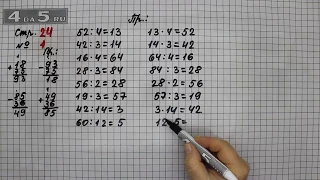 4DA5.RU
Стр. 24
№ 1
Пр.:
52:4=13 13·4=52
42:3=14 14·3=42
16·4=64 64:4=16
28·3=84 84:3=28
56:2=28 28·2=56
19·3=57 57:3=19
42:14=3 3·14=42
60:12=5 12·5=
Пр.:
+ 18 - 93
93 18
- 85 + 49
36 36
49 85